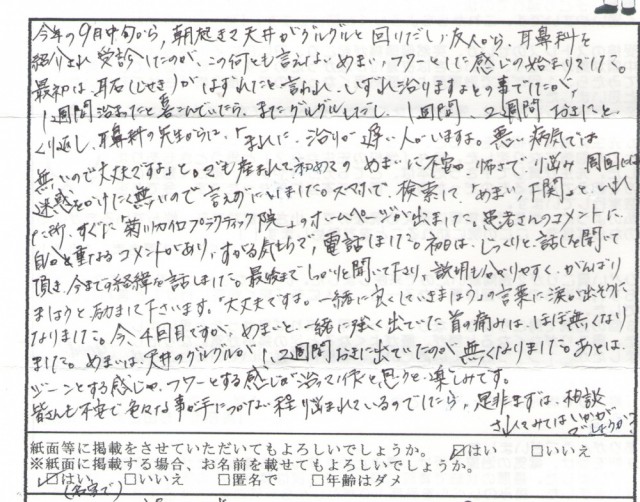 今年の9月中旬から、朝起きて天井がグルグルと回りだし、友人から、耳鼻科を
紹介され受診したのが、この何とも言えないめまい、フワーとした感じの始まりでした。
最初は、耳石(じせき)がはずれたと言われ、いずれ治りますよとの事でしたが、
1週間治まったと喜こんでいたら、またグルグルしだし、1週間、2週間おきにと、
くり返し、耳鼻科の先生からは、「まれに、治りが遅い人がいますよ。悪い病気では
無いので大丈夫ですよ」と。でも産まれて初めてのめまいに不安、怖さで、悩み周囲には
迷惑をかけたく無いので言えずにいました。スマホで、検索して、「めまい、下関」と、いれ
た所、すぐに「菊川カイロプラクティック院」のホームページが出ました。患者さんのコメントに、
自分と重なるコメントがあり、すがる気もちで電話しました。初日は、じっくりと、話しを聞いて
頂き今までの経緯を話しました。最後までしっかりと聞いて下り、説明も分かりやすく、がんばり
ましょうと、励まして下さいます。「大丈夫です。一緒に良くしていきましょう」の言葉に涙が出そうに
なりました。今、4回目ですが、めまいと一緒に強く出ていた首の痛みは、ほぼ無くなり
ました。めまいは、天井のグルグルが1、2週間おきに出ていたのが無くなりました。あとは、
ジーンとする感じや、フワーとする感じが治って行くと思うと、楽しみです。
皆さんも不安で色々な事が手につかない程、悩まれているのでしたら、是非まずは、相談
されてみてはいかが
でしょうか?
紙面等に掲載をさせていただいてもよろしいでしょうか。 ☑はい □いいえ
※紙面に掲載する場合、お名前を載せてもよろしいでしょうか。
☑はい □いいえ □匿名で □年齢はダメ